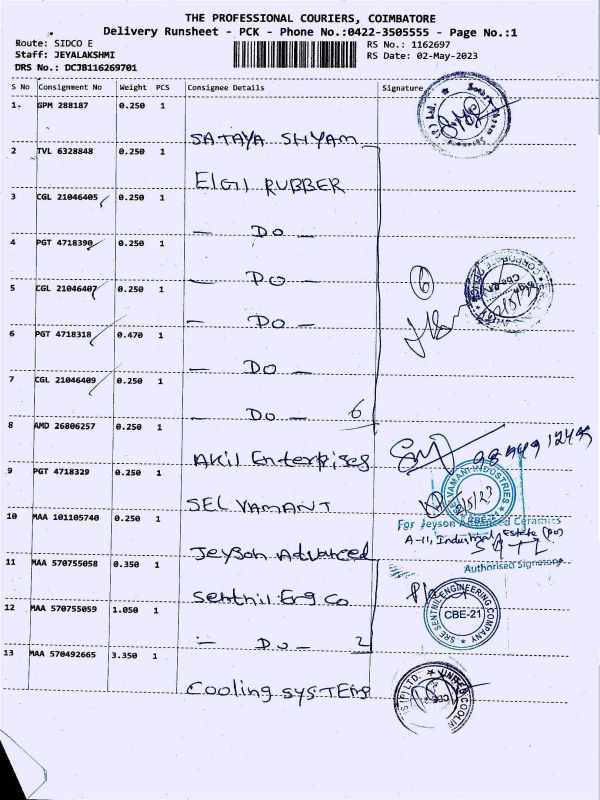 THE PROFESSIONAL COURIERS, COIMBATORE
Delivery Runsheet - PCK - Phone No.:0422-3505555 - Page No.:1
Route: SIDCO E
Staff: JEYALAKSHMI
DRS No.: DCJB116269701
RS No.: 1162697
RS Date: 02-May-2023
S No Consignment No Weight PCS Consignee Details Signature
1. GPM 288187 0.250 1
SATAYA SHYAM
2 TVL 6328848 0.250 1
ElGI RUBBER
3 CGL 21046405 0.250 1
— Do —
4 PGT 4718390 0.250 1
— Do —
5 CGL 21046407 0.250 1
— Do —
6 PGT 4718318 0.470 1
— Do —
7 CGL 21046409 0.250 1
— Do — 6
6
8 AMD 26806257 0.250 1
Akil Enterprises
9 PGT 4718329 0.250 1
SELVAMANI
VAMANI INDUSTRIES
CBE-21
10 MAA 101105740 0.250 1
Jeyson Advanced
For Jeyson Advanced Ceramics
A-11, Industrial Estate (po)
Authorised Signatory
11 MAA 570755058 0.350 1
Senthil Eng Co
12 MAA 570755059 1.050 1
— Do — 2
SRE SENTHIL ENGINEERING COMPANY
CBE-21
13 MAA 570492665 3.350 1
Cooling SYSTEMS